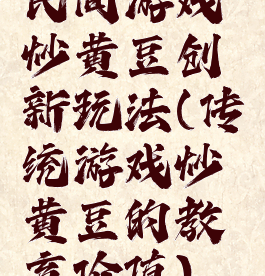 民间游戏
炒黄豆创
新玩法(传
统游戏炒
黄豆的教
育价值)